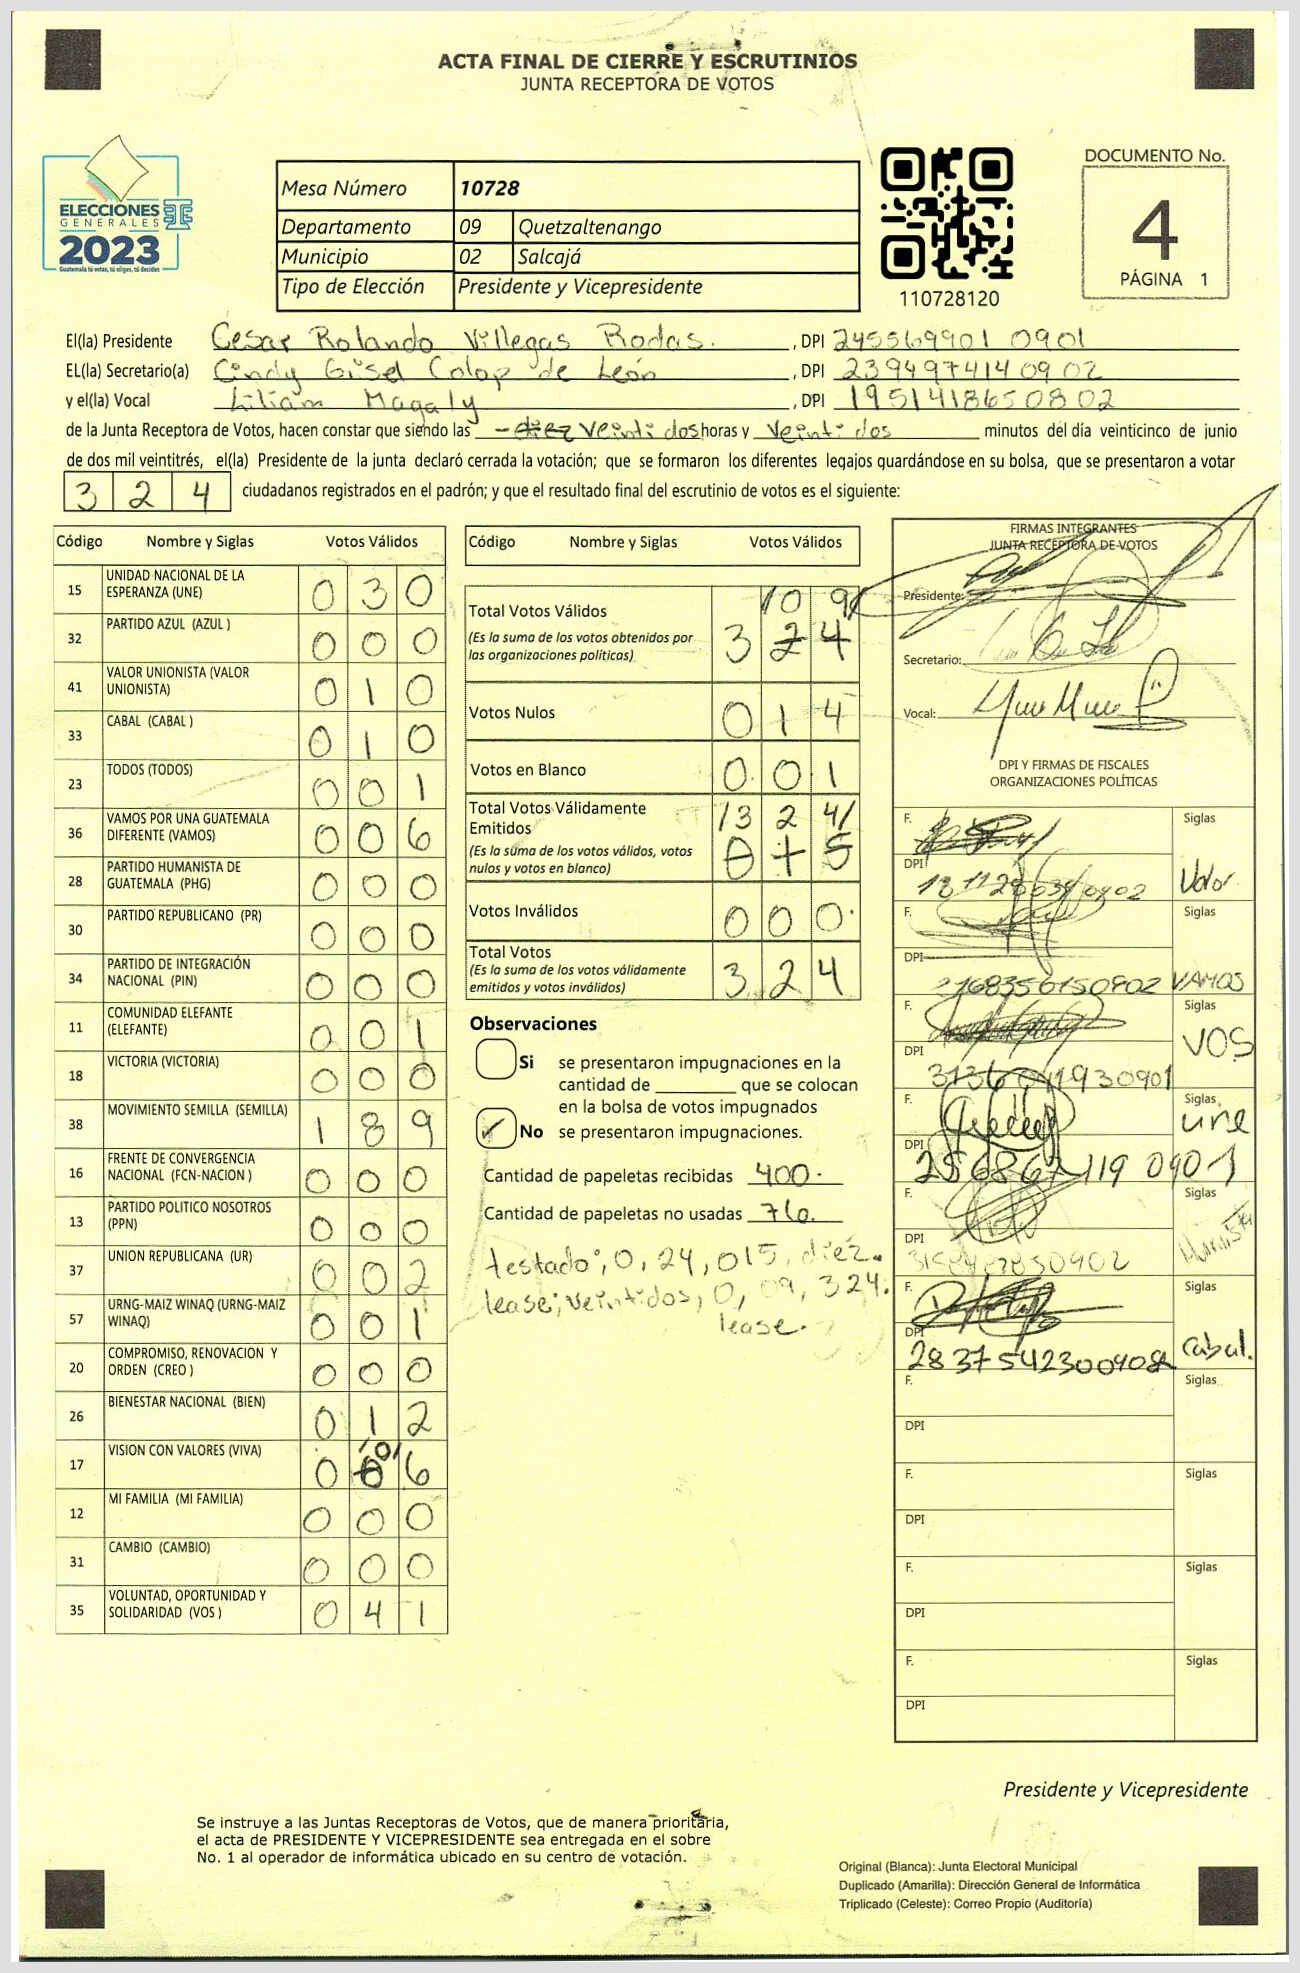 ACTA FINAL DE CIERRE Y ESCRUTINIOS
JUNTA RECEPTORA DE VOTOS
ELECCIONES
GENERALES
2023
Guatemala tú votas, tú eliges, tú decides
Mesa Número 10728
Departamento 09 Quetzaltenango
Municipio 02 Salcajá
Tipo de Elección Presidente y Vicepresidente
110728120
DOCUMENTO No.
4
PÁGINA 1
El(la) Presidente Cesar Rolando Villegas Rodas. , DPI 245569901 0901
EL(la) Secretario(a) Cindy Gisel Colop de León , DPI 2394974140902
y el(la) Vocal Lilian Magaly , DPI 1951418650802
de la Junta Receptora de Votos, hacen constar que siendo las - diez veintidos horas y veintidos minutos del día veinticinco de junio
de dos mil veintitrés, el(la) Presidente de la junta declaró cerrada la votación; que se formaron los diferentes legajos guardándose en su bolsa, que se presentaron a votar
3 2 4 ciudadanos registrados en el padrón; y que el resultado final del escrutinio de votos es el siguiente:
Código Nombre y Siglas Votos Válidos
15 UNIDAD NACIONAL DE LA ESPERANZA (UNE) 0 3 0
32 PARTIDO AZUL (AZUL ) 0 0 0
41 VALOR UNIONISTA (VALOR UNIONISTA) 0 1 0
33 CABAL (CABAL ) 0 1 0
23 TODOS (TODOS) 0 0 1
36 VAMOS POR UNA GUATEMALA DIFERENTE (VAMOS) 0 0 6
28 PARTIDO HUMANISTA DE GUATEMALA (PHG) 0 0 0
30 PARTIDO REPUBLICANO (PR) 0 0 0
34 PARTIDO DE INTEGRACIÓN NACIONAL (PIN) 0 0 0
11 COMUNIDAD ELEFANTE (ELEFANTE) 0 0 1
18 VICTORIA (VICTORIA) 0 0 0
38 MOVIMIENTO SEMILLA (SEMILLA) 1 8 9
16 FRENTE DE CONVERGENCIA NACIONAL (FCN-NACION ) 0 0 0
13 PARTIDO POLITICO NOSOTROS (PPN) 0 0 0
37 UNION REPUBLICANA (UR) 0 0 2
57 URNG-MAIZ WINAQ (URNG-MAIZ WINAQ) 0 0 1
20 COMPROMISO, RENOVACION Y ORDEN (CREO ) 0 0 0
26 BIENESTAR NACIONAL (BIEN) 0 1 2
17 VISION CON VALORES (VIVA) 0 /0/ 6
12 MI FAMILIA (MI FAMILIA) 0 0 0
31 CAMBIO (CAMBIO) 0 0 0
35 VOLUNTAD, OPORTUNIDAD Y SOLIDARIDAD (VOS ) 0 4 1
Código Nombre y Siglas Votos Válidos
Total Votos Válidos
(Es la suma de los votos obtenidos por
las organizaciones políticas)
/0 9/
3 2 4
Votos Nulos 0 1 4
Votos en Blanco 0 0 1
Total Votos Válidamente
Emitidos
(Es la suma de los votos válidos, votos
nulos y votos en blanco)
/3 2 4/
0 1 5
Votos Inválidos 0 0 0
Total Votos
(Es la suma de los votos válidamente
emitidos y votos inválidos)
3 2 4
Observaciones
Si se presentaron impugnaciones en la
cantidad de ________ que se colocan
en la bolsa de votos impugnados
✓ No se presentaron impugnaciones.
Cantidad de papeletas recibidas 400.
Cantidad de papeletas no usadas 76.
testado; 0, 24, 015, diez.
lease; veintidos, 0, 09, 324.
lease.
FIRMAS INTEGRANTES
JUNTA RECEPTORA DE VOTOS
Presidente:
Secretario:
Vocal:
DPI Y FIRMAS DE FISCALES
ORGANIZACIONES POLÍTICAS
F. Siglas
DPI Valor
F. Siglas
DPI VAMOS
F. Siglas
DPI VOS
F. Siglas
DPI une
F. Siglas
DPI
F. Siglas
DPI Cabal.
F. Siglas
DPI
F. Siglas
DPI
F. Siglas
DPI
F. Siglas
DPI
Presidente y Vicepresidente
Se instruye a las Juntas Receptoras de Votos, que de manera prioritaria,
el acta de PRESIDENTE Y VICEPRESIDENTE sea entregada en el sobre
No. 1 al operador de informática ubicado en su centro de votación.
Original (Blanca): Junta Electoral Municipal
Duplicado (Amarilla): Dirección General de Informática
Triplicado (Celeste): Correo Propio (Auditoría)